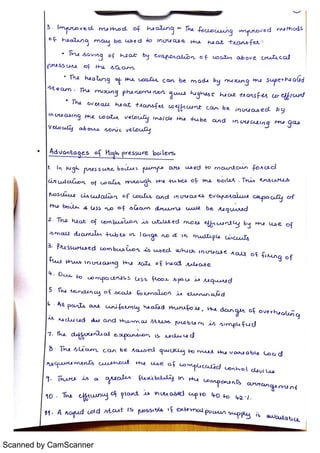 3. Improved method of heating - The following improved methods
of heating may be used to increase the heat transfer
• The saving of heat by evaporation of water above critical
pressure of the steam
• The heating of the water can be made by mixing the superheated
steam. The mixing phenomenon gives highest heat transfer co efficient
• The overall heat transfer coefficient can be increased by
increasing the water velocity inside the tube and increasing the gas
velocity above sonic velocity
• Advantages of High pressure boilers
1. In high pressure boilers pumps are used to maintain forced
circulation of water through the tubes of the boiler. This ensures
positive circulation of water and increases evaporative capacity of
the boiler & less no of steam drums will be required
2. The heat of combustion is utilised more efficiently by the use of
small diameter tubes in large no & in multiple circuits
3. Pressurised combustion is used which increases rate of firing of
fuel thus increasing the rate of heat release
4. Due to compactness less floor space is required
5. The tendency of scale formation is eliminated
6. All parts are uniformly heated therefore, the danger of overheating
is reduced and thermal stress problem is simplified
7. The differential expansion is reduced
8. The steam can be raised quickly to meet the variable load
requirements without the use of complicated control devices
9. There is a greater flexibility in the components arrangement
10. The efficiency of plant is increased upto 40 to 42%.
11. A rapid cold start is possible if external power supply is available
Scanned by CamScanner